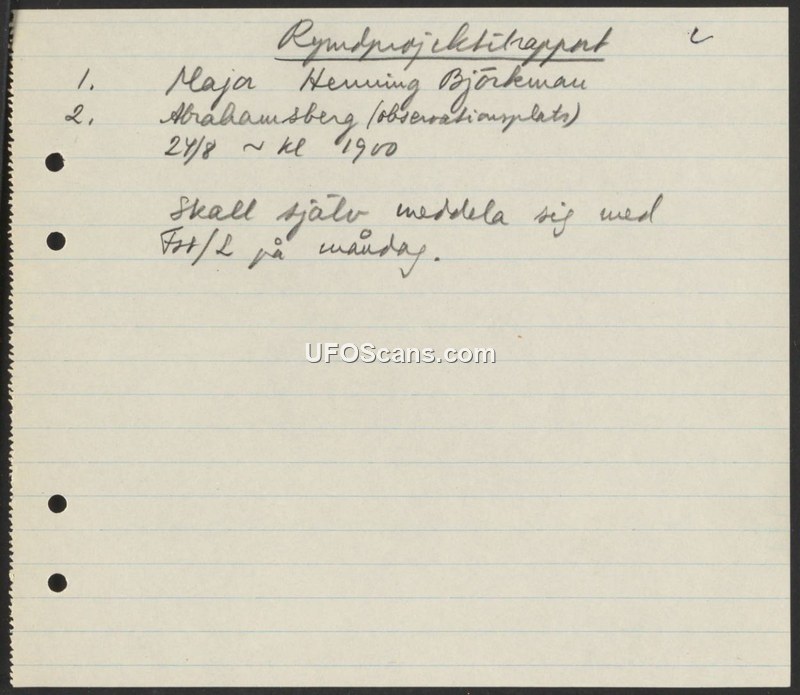 Rymdprojektilrapport
1. Major Henning Björkman
2. Abrahamsberg (observationsplats)
24/8 ~ kl 1900
Skall själv meddela sig med
Fst/L på måndag.
UFOScans.com